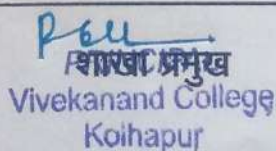 शाखा प्रमुख
Vivekanand College
Kolhapur